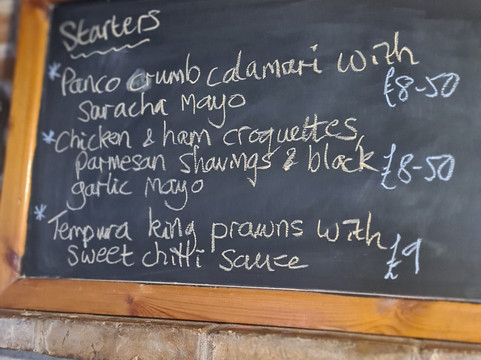 Starters
* Panco crumb calamari with
Saracha Mayo £8-50
* Chicken & ham croquettes,
parmesan shavings & black
garlic mayo £8-50
* Tempura king prawns with
sweet chilli sauce £9